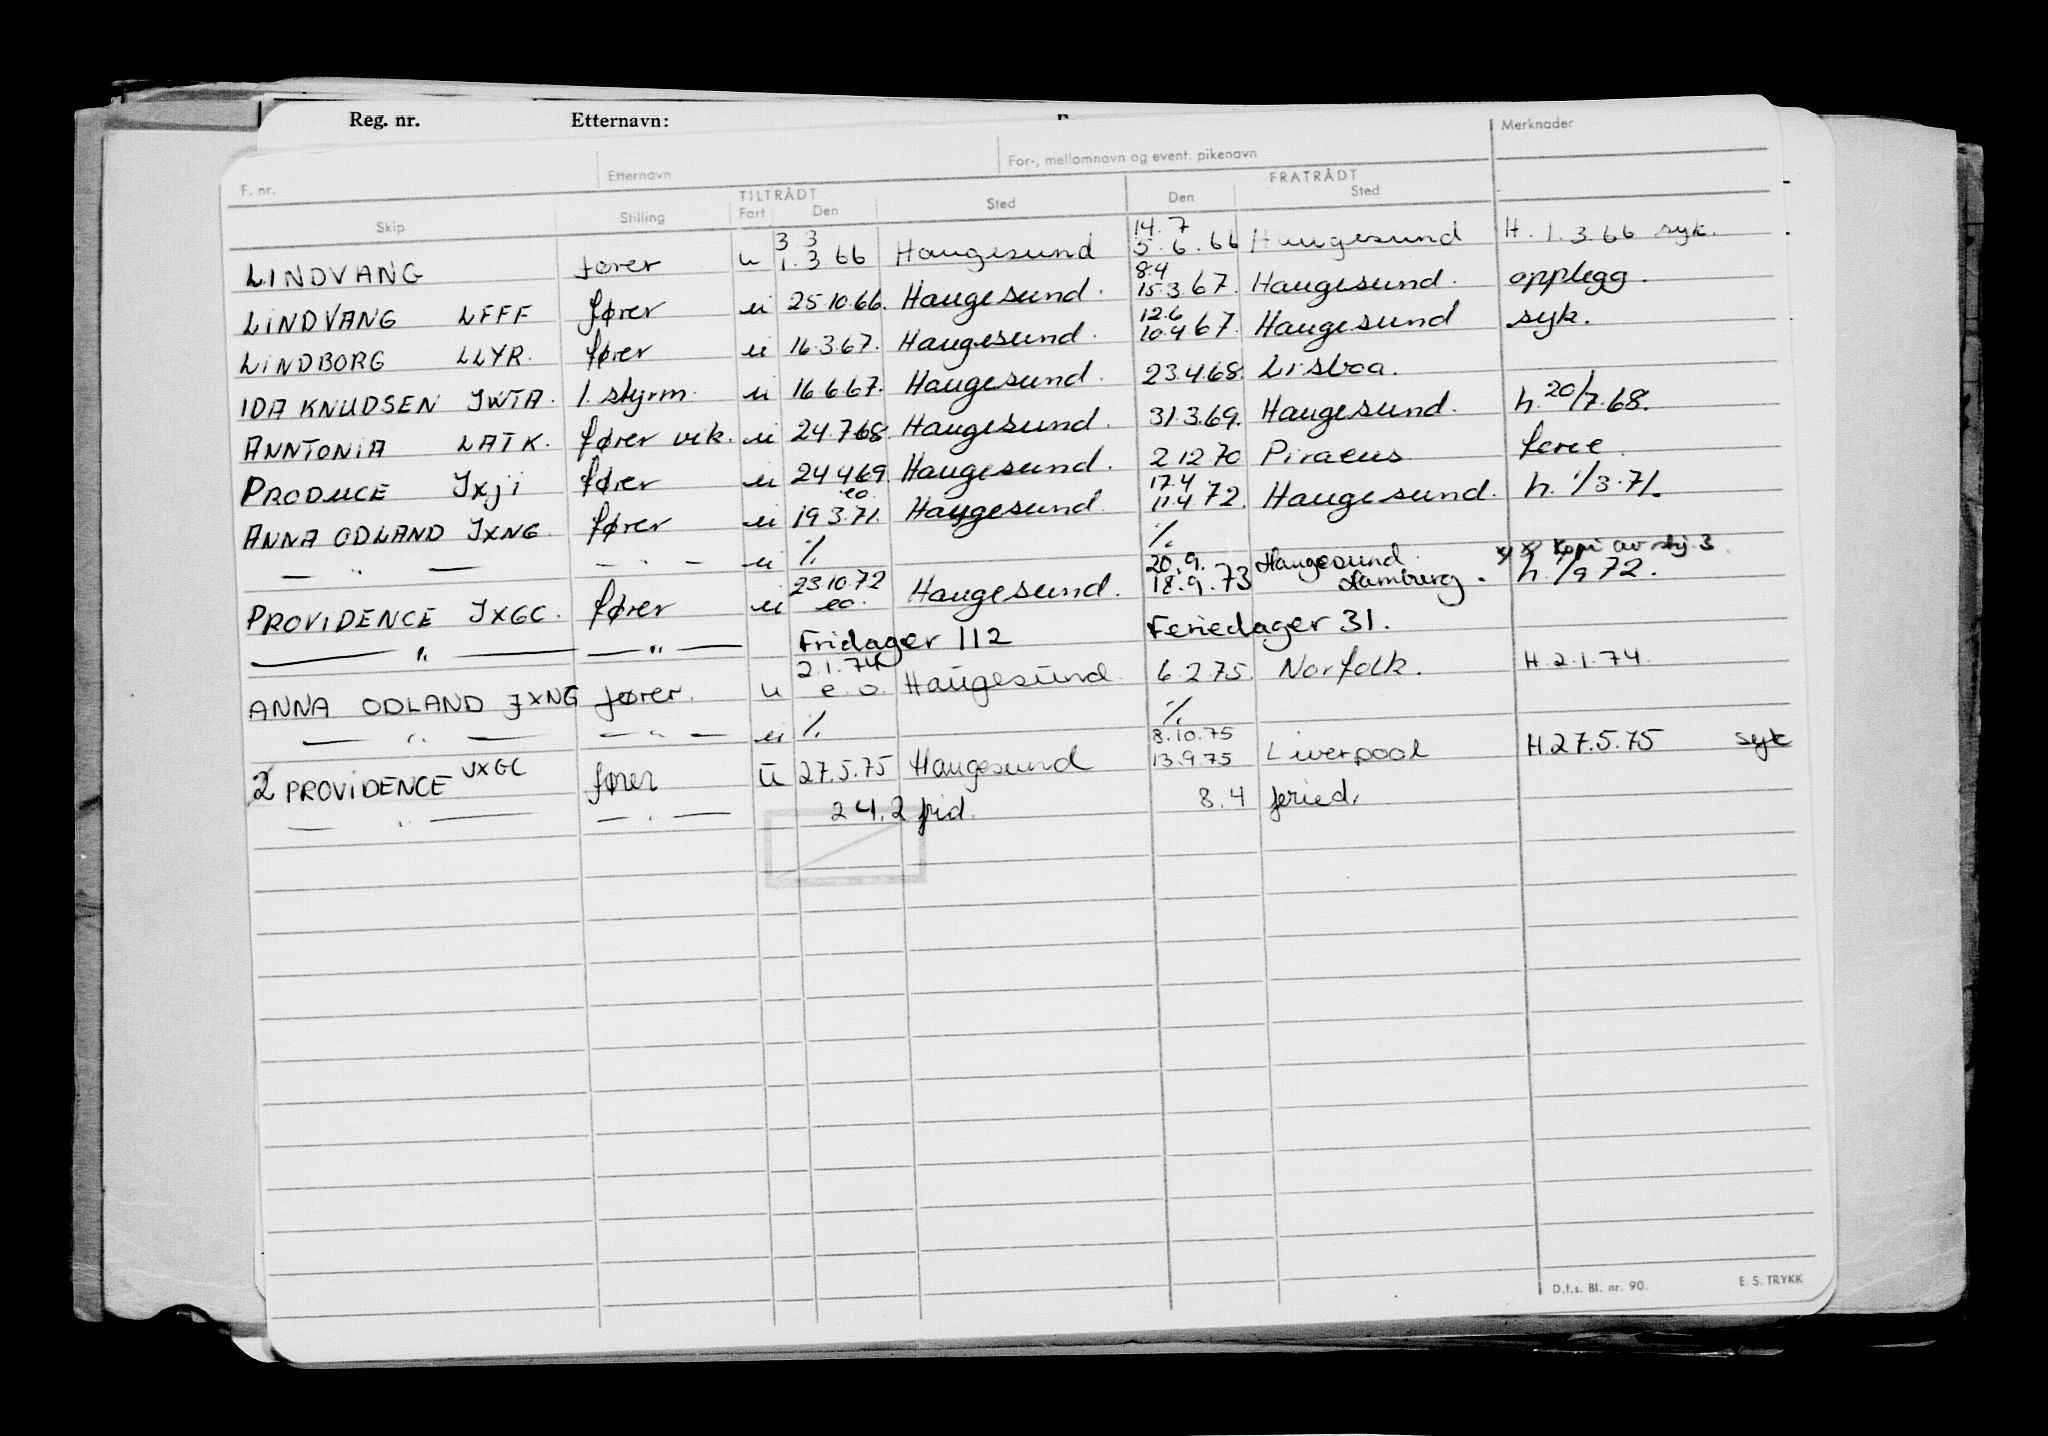 Reg. nr. Etternavn:
F. nr. Etternavn For-, mellomnavn og event. pikenavn Merknader
TILTRÅDT FRATRÅDT
Skip Stilling Fart Den Sted Den Sted
3 3 14. 7
LINDVANG fører u 1. 3 66 Haugesund 5. 6. 66 Haugesund H. 1.3.66 syk.
8.4
LINDVANG LFFF fører u 25.10.66. Haugesund. 15.3.67. Haugesund. opplegg.
12.6
LINDBORG LLYR. fører u 16.3.67. Haugesund. 10.4 67. Haugesund syk.
IDA KNUDSEN JWTA. 1. styrm. u 16.6.67. Haugesund. 23.4.68. Lisboa.
ANNTONIA LATK. fører vik. u 24.7.68. Haugesund. 31.3.69. Haugesund. h. 20/7.68.
PRODUCE JXJI fører u 24 4.69. Haugesund. 2 12 70 Piraeus ferie.
eo. 17.4
ANNA ODLAND JXNG. fører u 19 3.71. Haugesund. 11.4 72. Haugesund. h. 1/3.71.
— " — — " — u ·/. ·/.
23.10.72 20.9. Haugesund. x/ x/ Kopi av stj. 3.
PROVIDENCE JXGC. fører u eo. Haugesund. 18.9.73 Hamburg. h. 1/9 72.
— " — — " — Fridager 112 Feriedager 31.
2.1.74
ANNA ODLAND JXNG fører. u e.o. Haugesund. 6.2.75. Norfolk. H.2.1.74.
— " — — " — u ·/. ·/.
8.10.75
2 PROVIDENCE JXGC fører U 27.5.75 Haugesund 13.9.75 Liverpool H.27.5.75 syk
— " — — " — 24.2 frid. 8.4 feried.
D.f.s. Bl. nr. 90. E. S. TRYKK